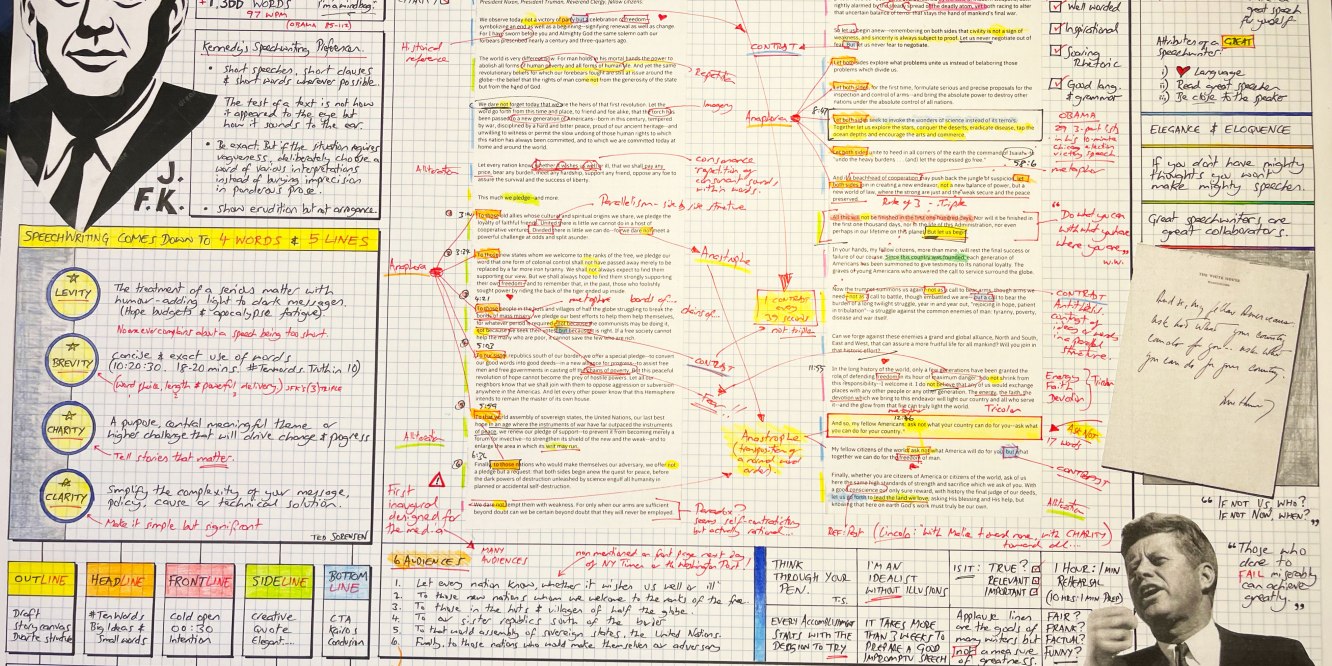 +1,300 WORDS
97 WPM
(OBAMA 85-112)
Kennedy's Speechwriting Preference.
• Short speeches, short clauses
& short words wherever possible.
• The test of a text is not how
it appeared to the eye but
how it sounds to the ear.
• Be exact. But if the situation requires
vagueness, deliberately choose a
word of various interpretations
instead of burying imprecision
in ponderous prose.
• Show erudition but not arrogance.
J.
F.K.
SPEECHWRITING COMES DOWN TO 4 WORDS & 5 LINES
LEVITY
The treatment of a serious matter with
humour - adding light to dark messages.
(Hope budgets & apocalypse fatigue)
No one ever complains about a speech being too short.
BREVITY
Concise & exact use of words
(10:20:30. 18-20 mins. #Tenwords. Truth in 10)
CHARITY
A purpose, central meaningful theme or
higher challenge that will drive change & progress
Tell stories that matter.
CLARITY
Simplify the complexity of your message,
policy, cause or technical solution.
Make it simple but significant
TED SORENSEN
OUTLINE
Draft
Story canvas
HEADLINE
#TenWords
Big Ideas &
Small words
FRONTLINE
Cold open
00:30
Intention
SIDELINE
creative
Quote
Elegant...
BOTTOM
LINE
CTA
Kairos
Conclusion
President Nixon, President Truman, Reverend Clergy, fellow citizens:
We observe today not a victory of party but a celebration of freedom--
symbolizing an end as well as a beginning--signifying renewal as well as change.
For I have sworn before you and Almighty God the same solemn oath our
forbears prescribed nearly a century and three-quarters ago.
Historical
reference
The world is very different now. For man holds in his mortal hands the power to
abolish all forms of human poverty and all forms of human life. And yet the same
revolutionary beliefs for which our forebears fought are still at issue around the
globe--the belief that the rights of man come not from the generosity of the state
but from the hand of God.
Repetition
We dare not forget today that we are the heirs of that first revolution. Let the
word go forth from this time and place, to friend and foe alike, that the torch has
been passed to a new generation of Americans--born in this century, tempered
by war, disciplined by a hard and bitter peace, proud of our ancient heritage--and
unwilling to witness or permit the slow undoing of those human rights to which
this nation has always been committed, and to which we are committed today at
home and around the world.
Imagery
Let every nation know, whether it wishes us well or ill, that we shall pay any
price, bear any burden, meet any hardship, support any friend, oppose any foe to
assure the survival and the success of liberty.
Alliteration
consonance
repetition of
consonant sounds
within words.
This much we pledge--and more.
Parallelism - side by side structure
To those old allies whose cultural and spiritual origins we share, we pledge the
loyalty of faithful friends. United there is little we cannot do in a host of
cooperative ventures. Divided there is little we can do--for we dare not meet a
powerful challenge at odds and split asunder.
Anaphora
Anastrophe
To those new states whom we welcome to the ranks of the free, we pledge our
word that one form of colonial control shall not have passed away merely to be
replaced by a far more iron tyranny. We shall not always expect to find them
supporting our view. But we shall always hope to find them strongly supporting
their own freedom--and to remember that, in the past, those who foolishly
sought power by riding the back of the tiger ended up inside.
4:21
metaphor bonds of...
To those people in the huts and villages of half the globe struggling to break the
bonds of mass misery, we pledge our best efforts to help them help themselves,
for whatever period is required--not because the communists may be doing it,
not because we seek their votes, but because it is right. If a free society cannot
help the many who are poor, it cannot save the few who are rich.
chains of...
5:03
To our sister republics south of our border, we offer a special pledge--to convert
our good words into good deeds--in a new alliance for progress--to assist free
men and free governments in casting off the chains of poverty. But this peaceful
revolution of hope cannot become the prey of hostile powers. Let all our
neighbors know that we shall join with them to oppose aggression or subversion
anywhere in the Americas. And let every other power know that this Hemisphere
intends to remain the master of its own house.
5:59
To that world assembly of sovereign states, the United Nations, our last best
hope in an age where the instruments of war have far outpaced the instruments
of peace, we renew our pledge of support--to prevent it from becoming merely a
forum for invective--to strengthen its shield of the new and the weak--and to
enlarge the area in which its writ may run.
Alliteration
Finally, to those nations who would make themselves our adversary, we offer not
a pledge but a request: that both sides begin anew the quest for peace, before
the dark powers of destruction unleashed by science engulf all humanity in
planned or accidental self-destruction.
We dare not tempt them with weakness. For only when our arms are sufficient
beyond doubt can we be certain beyond doubt that they will never be employed.
Paradox?
seems self-contradictory
but actually rational...
First
inaugural
designed for
the media
MANY
AUDIENCES
6 AUDIENCES
non mentioned on front page next day
of NY Times or the Washington Post!
1. Let every nation know, whether it wishes us well or ill
2. To those new nations whom we welcome to the ranks of the free.
3. To those in the huts & villages of half the globe.
4. To our sister republics south of the border
5. To that world assembly of sovereign states, the United Nations.
6. Finally, to those nations who would make themselves our adversary
rightly alarmed by the steady spread of the deadly atom, yet both racing to alter
that uncertain balance of terror that stays the hand of mankind's final war.
So let us begin anew--remembering on both sides that civility is not a sign of
weakness, and sincerity is always subject to proof. Let us never negotiate out of
fear. But let us never fear to negotiate.
CONTRAST
Let both sides explore what problems unite us instead of belaboring those
problems which divide us.
Let both sides, for the first time, formulate serious and precise proposals for the
inspection and control of arms--and bring the absolute power to destroy other
nations under the absolute control of all nations.
Anaphora
8:47
Let both sides seek to invoke the wonders of science instead of its terrors.
Together let us explore the stars, conquer the deserts, eradicate disease, tap the
ocean depths and encourage the arts and commerce.
Let both sides unite to heed in all corners of the earth the command of Isaiah--to
"undo the heavy burdens . . . (and) let the oppressed go free."
58:6
And if a beachhead of cooperation may push back the jungle of suspicion, let
both sides join in creating a new endeavor, not a new balance of power, but a
new world of law, where the strong are just and the weak secure and the peace
preserved.
metaphor
Rule of 3 - Triple
All this will not be finished in the first one hundred days. Nor will it be finished in
the first one thousand days, nor in the life of this Administration, nor even
perhaps in our lifetime on this planet. But let us begin.
"Do what you can
with what you have
where you are"
In your hands, my fellow citizens, more than mine, will rest the final success or
failure of our course. Since this country was founded, each generation of
Americans has been summoned to give testimony to its national loyalty. The
graves of young Americans who answered the call to service surround the globe.
1 contrast
every
39 seconds
not triple
Now the trumpet summons us again--not as a call to bear arms, though arms we
need--not as a call to battle, though embattled we are--but a call to bear the
burden of a long twilight struggle, year in and year out, "rejoicing in hope, patient
in tribulation"--a struggle against the common enemies of man: tyranny, poverty,
disease and war itself.
CONTRAST
Antithesis
contrast of
ideas or words
in a parallel
structure.
Can we forge against these enemies a grand and global alliance, North and South,
East and West, that can assure a more fruitful life for all mankind? Will you join in
that historic effort?
11:55
In the long history of the world, only a few generations have been granted the
role of defending freedom in its hour of maximum danger. I do not shrink from
this responsibility--I welcome it. I do not believe that any of us would exchange
places with any other people or any other generation. The energy, the faith, the
devotion which we bring to this endeavor will light our country and all who serve
it--and the glow from that fire can truly light the world.
Energy
Faith
Devotion
Tricolon
CONTRAST
Tricolon
And so, my fellow Americans: ask not what your country can do for you--ask what
you can do for your country.
ASK NOT
17 words
Anastrophe
(transposition of
normal word
order)
My fellow citizens of the world: ask not what America will do for you, but what
together we can do for the freedom of man.
CONTRAST
Finally, whether you are citizens of America or citizens of the world, ask of us
here the same high standards of strength and sacrifice which we ask of you. With
a good conscience our only sure reward, with history the final judge of our deeds,
let us go forth to lead the land we love, asking His blessing and His help, but
knowing that here on earth God's work must truly be our own.
Alliteration
(Lincoln: "With Malice toward none, with CHARITY
toward all...
Well worded
Inspirational
Soaring
Rhetoric
Good lang.
& grammar
OBAMA
29 3-part lists
in 10.5 minute
chicago election
victory speech
great speech
for yourself
Attributes of a GREAT
speechwriter:
i) ♥ Language
ii) Read great speeches
iii) Be close to the speaker
ELEGANCE & ELOQUENCE
If you don't have mighty
thoughts you won't
make mighty speeches.
Great speechwriters are
great collaborators.
THE WHITE HOUSE
WASHINGTON
And so, my fellow Americans:
ask not what your country
can do for you - ask what
you can do for your country.
"IF NOT US, WHO?
IF NOT NOW, WHEN?"
"Those who
dare to
FAIL miserably
can achieve
greatly."
THINK
THROUGH YOUR
PEN.
T.S.
I'M AN
IDEALIST
WITHOUT ILLUSIONS
IS IT: TRUE?
RELEVANT
IMPORTANT
1 HOUR: 1 MIN
REHEARSAL
(10 HRS: 1 MIN PREP)
EVERY ACCOMPLISHMENT
STARTS WITH THE
DECISION TO TRY
IT TAKES MORE
THAN 3 WEEKS TO
PREPARE A GOOD
IMPROMPTU SPEECH
Applause lines
are the goods of
many writers but
not a measure
of greatness.
FAIR?
FRANK?
FACTUAL?
FUNNY?